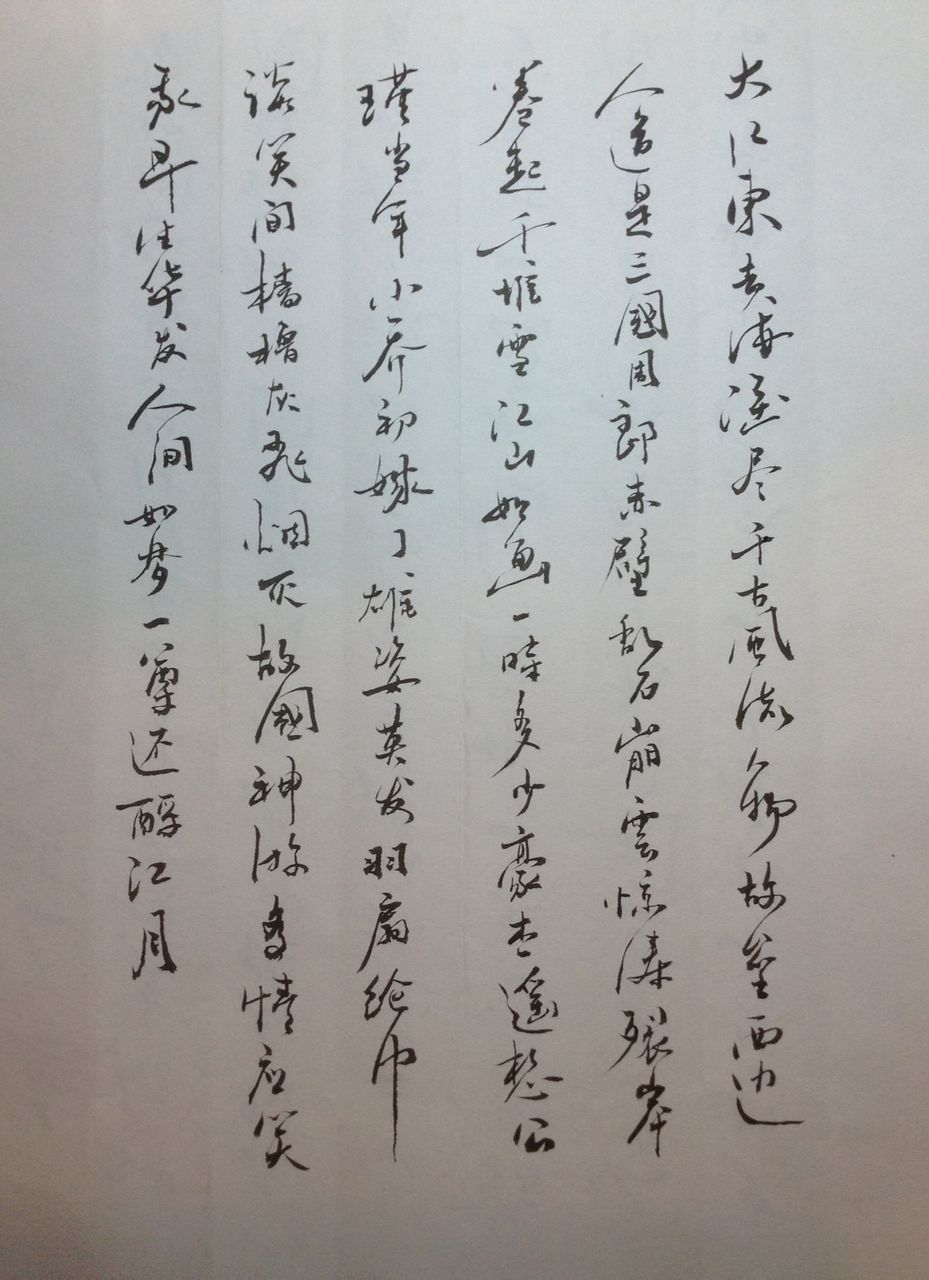 大江東去浪淘尽千古风流人物故垒西边
人道是三國周郎赤壁乱石崩雲惊涛裂岸
卷起千堆雪江山如画一時多少豪杰遥想公
瑾当年小乔初嫁了雄姿英发羽扇纶巾
谈笑间樯橹灰飞烟灭故國神游多情应笑
我早生华发人间如梦一尊还酹江月